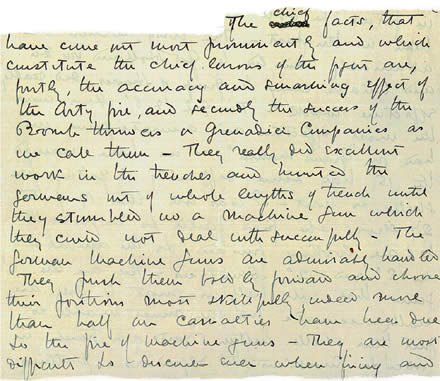 The chief facts, that
have come out most prominently and which
constitute the chief lessons of the fight are,
firstly, the accuracy and smashing effect of
the Arty fire, and secondly the success of the
Bomb throwers or Grenadier Companies as
we call them - They really did excellent
work in the trenches and hunted the
Germans out of whole lengths of trench until
they stumbled on a machine gun which
they could not deal with successfully - The
German Machine Guns are admirably handled
They push them boldly forward and choose
their positions most skilfully indeed more
than half our casualties have been due
to the fire of machine guns - They are most
difficult to discover even when firing and